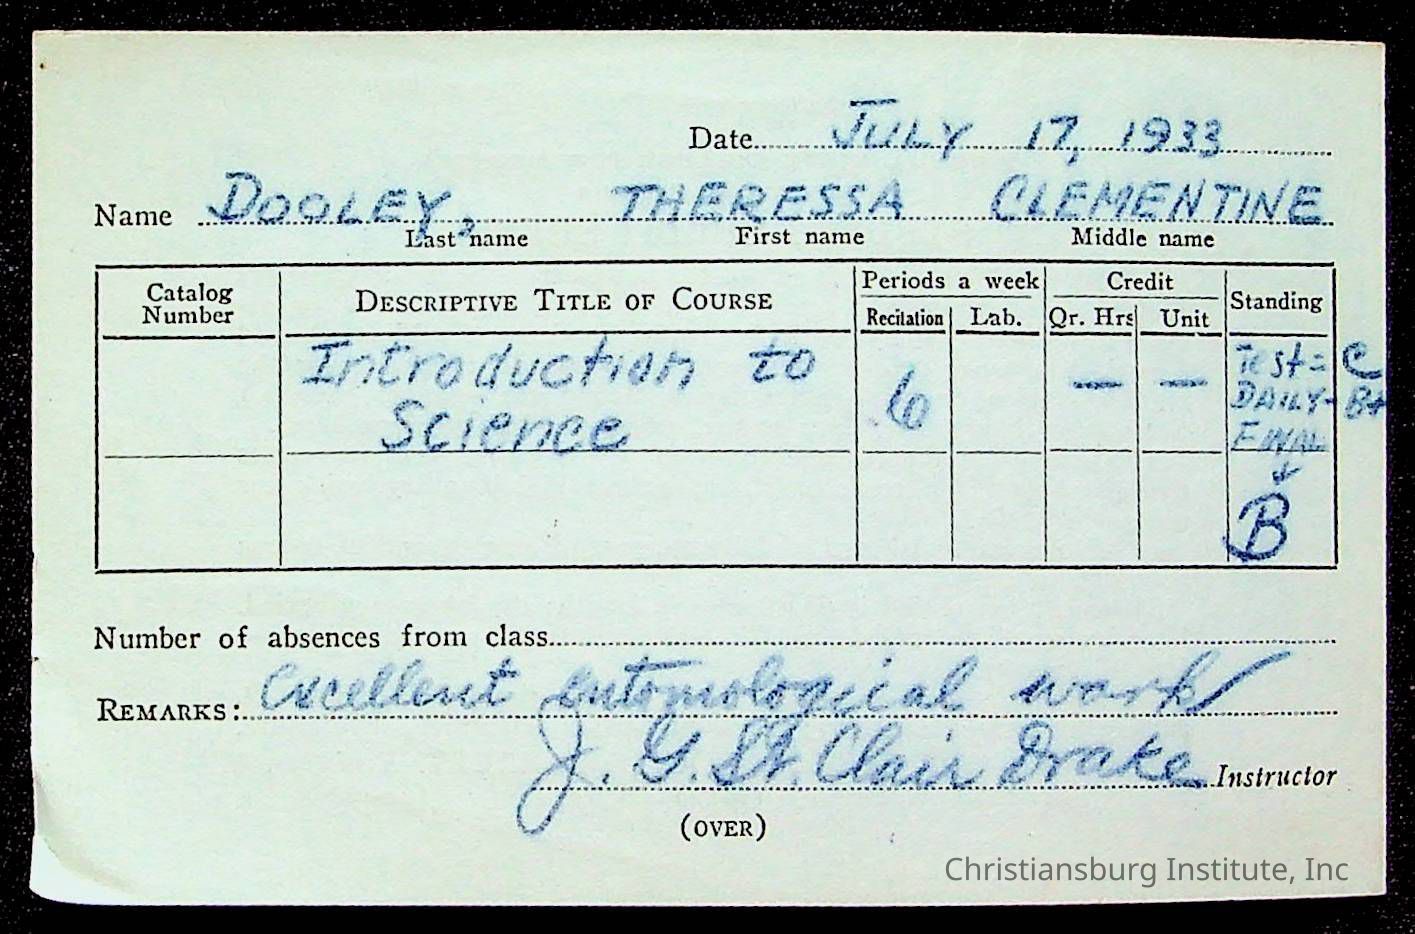 Date JULY 17, 1933
Name DOOLEY, THERESSA CLEMENTINE
Last name First name Middle name
Catalog Number
DESCRIPTIVE TITLE OF COURSE
Periods a week
Recitation Lab.
Credit
Qr. Hrs Unit
Standing
Introduction to
Science
6
— —
Test = C
DAILY - B+
FINAL
↓
B
Number of absences from class
REMARKS: Excellent entomological work
J. G. St. Clair Drake Instructor
(OVER)
Christiansburg Institute, Inc